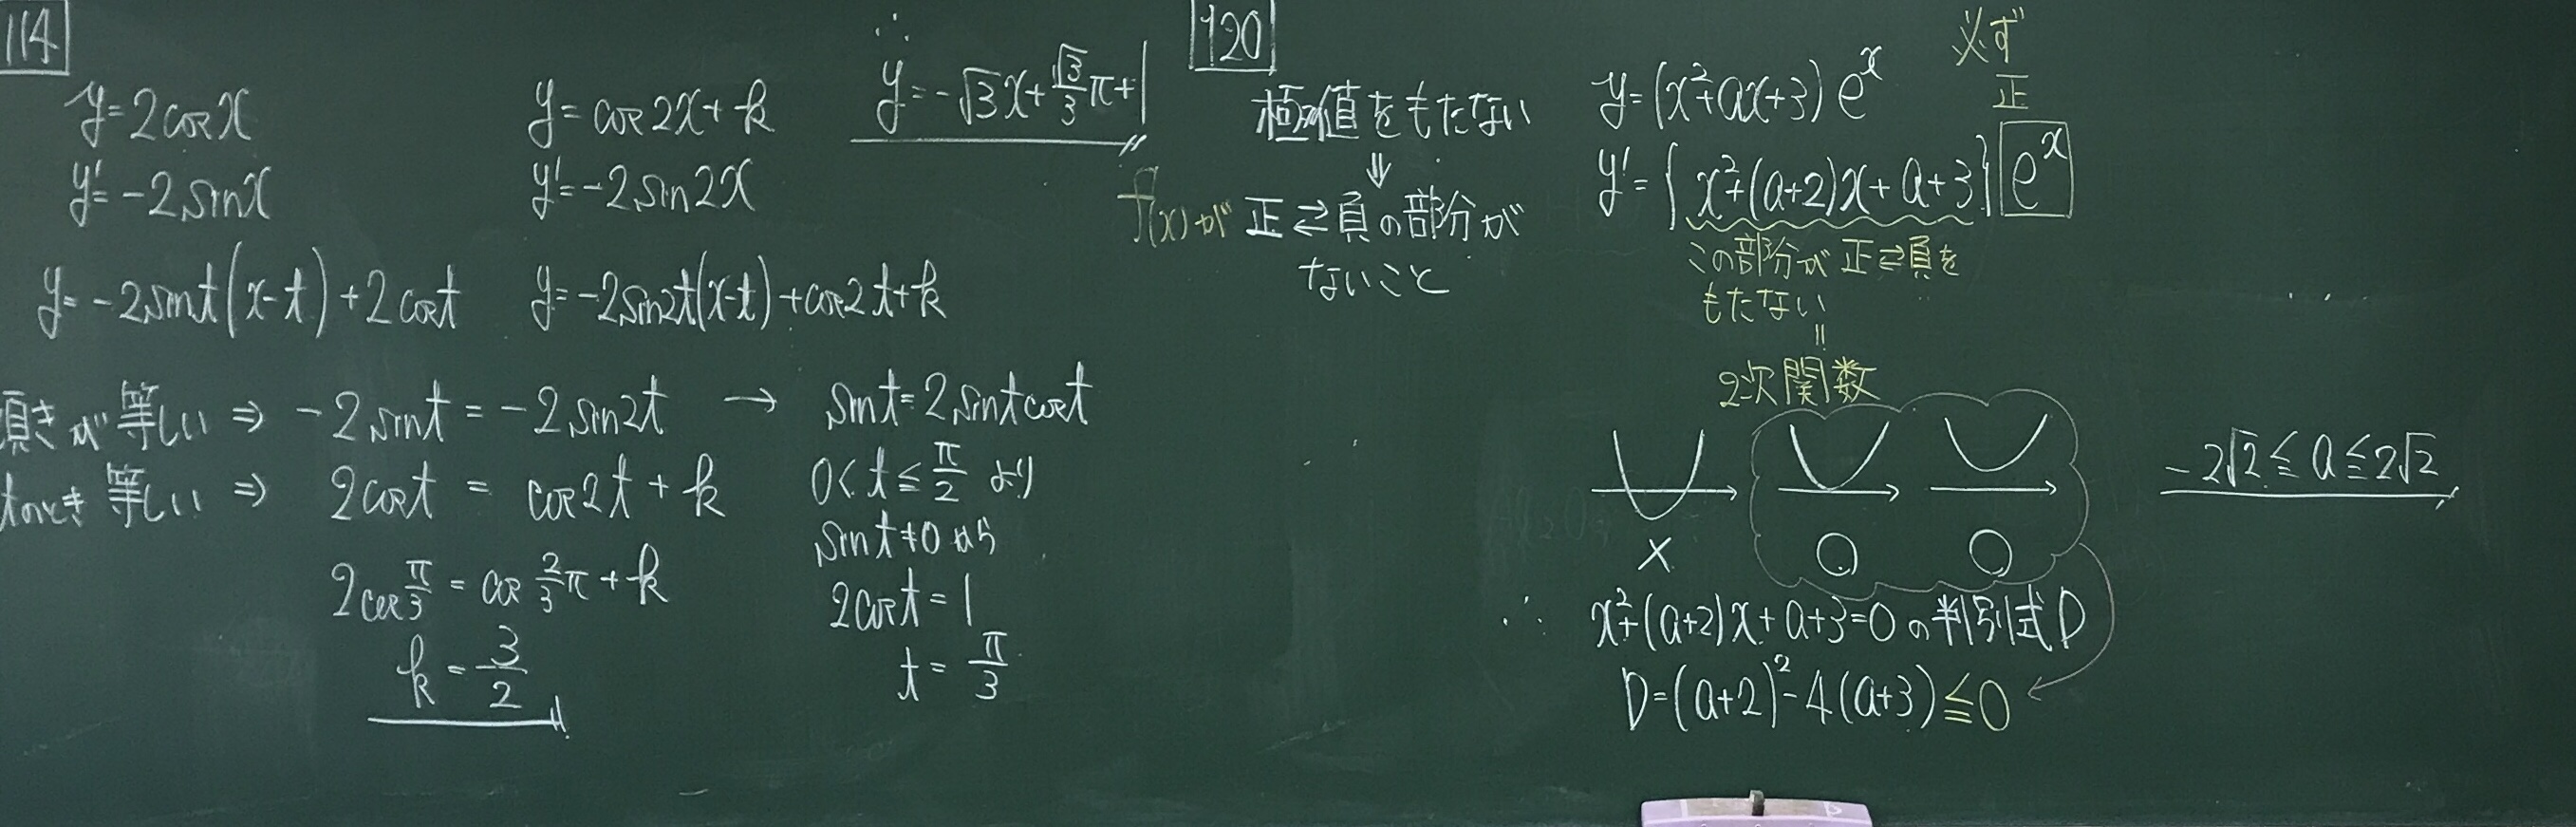 114
y=2cosx
y'=-2sinx
y=cos2x+k
y'=-2sin2x
∴
y=-√3x+√3/3π+1
y=-2sint(x-t)+2cost
y=-2sin2t(x-t)+cos2t+k
傾きが等しい ⇒ -2sint=-2sin2t → sint=2sintcost
tのとき等しい ⇒ 2cost = cos2t+k
0<t≦π/2 より
sint≠0 から
2cosπ/3=cos2/3π+k
2cost=1
k=3/2
t=π/3
120
極値をもたない
⇓
f'(x)が正⇄負の部分が
ないこと
y=(x²+ax+3)eˣ
必ず
正
y'={x²+(a+2)x+a+3}eˣ
この部分が正⇄負を
もたない
=
2次関数
× ○ ○
∴ x²+(a+2)x+a+3=0の判別式D
D=(a+2)²-4(a+3)≦0
-2√2≦a≦2√2